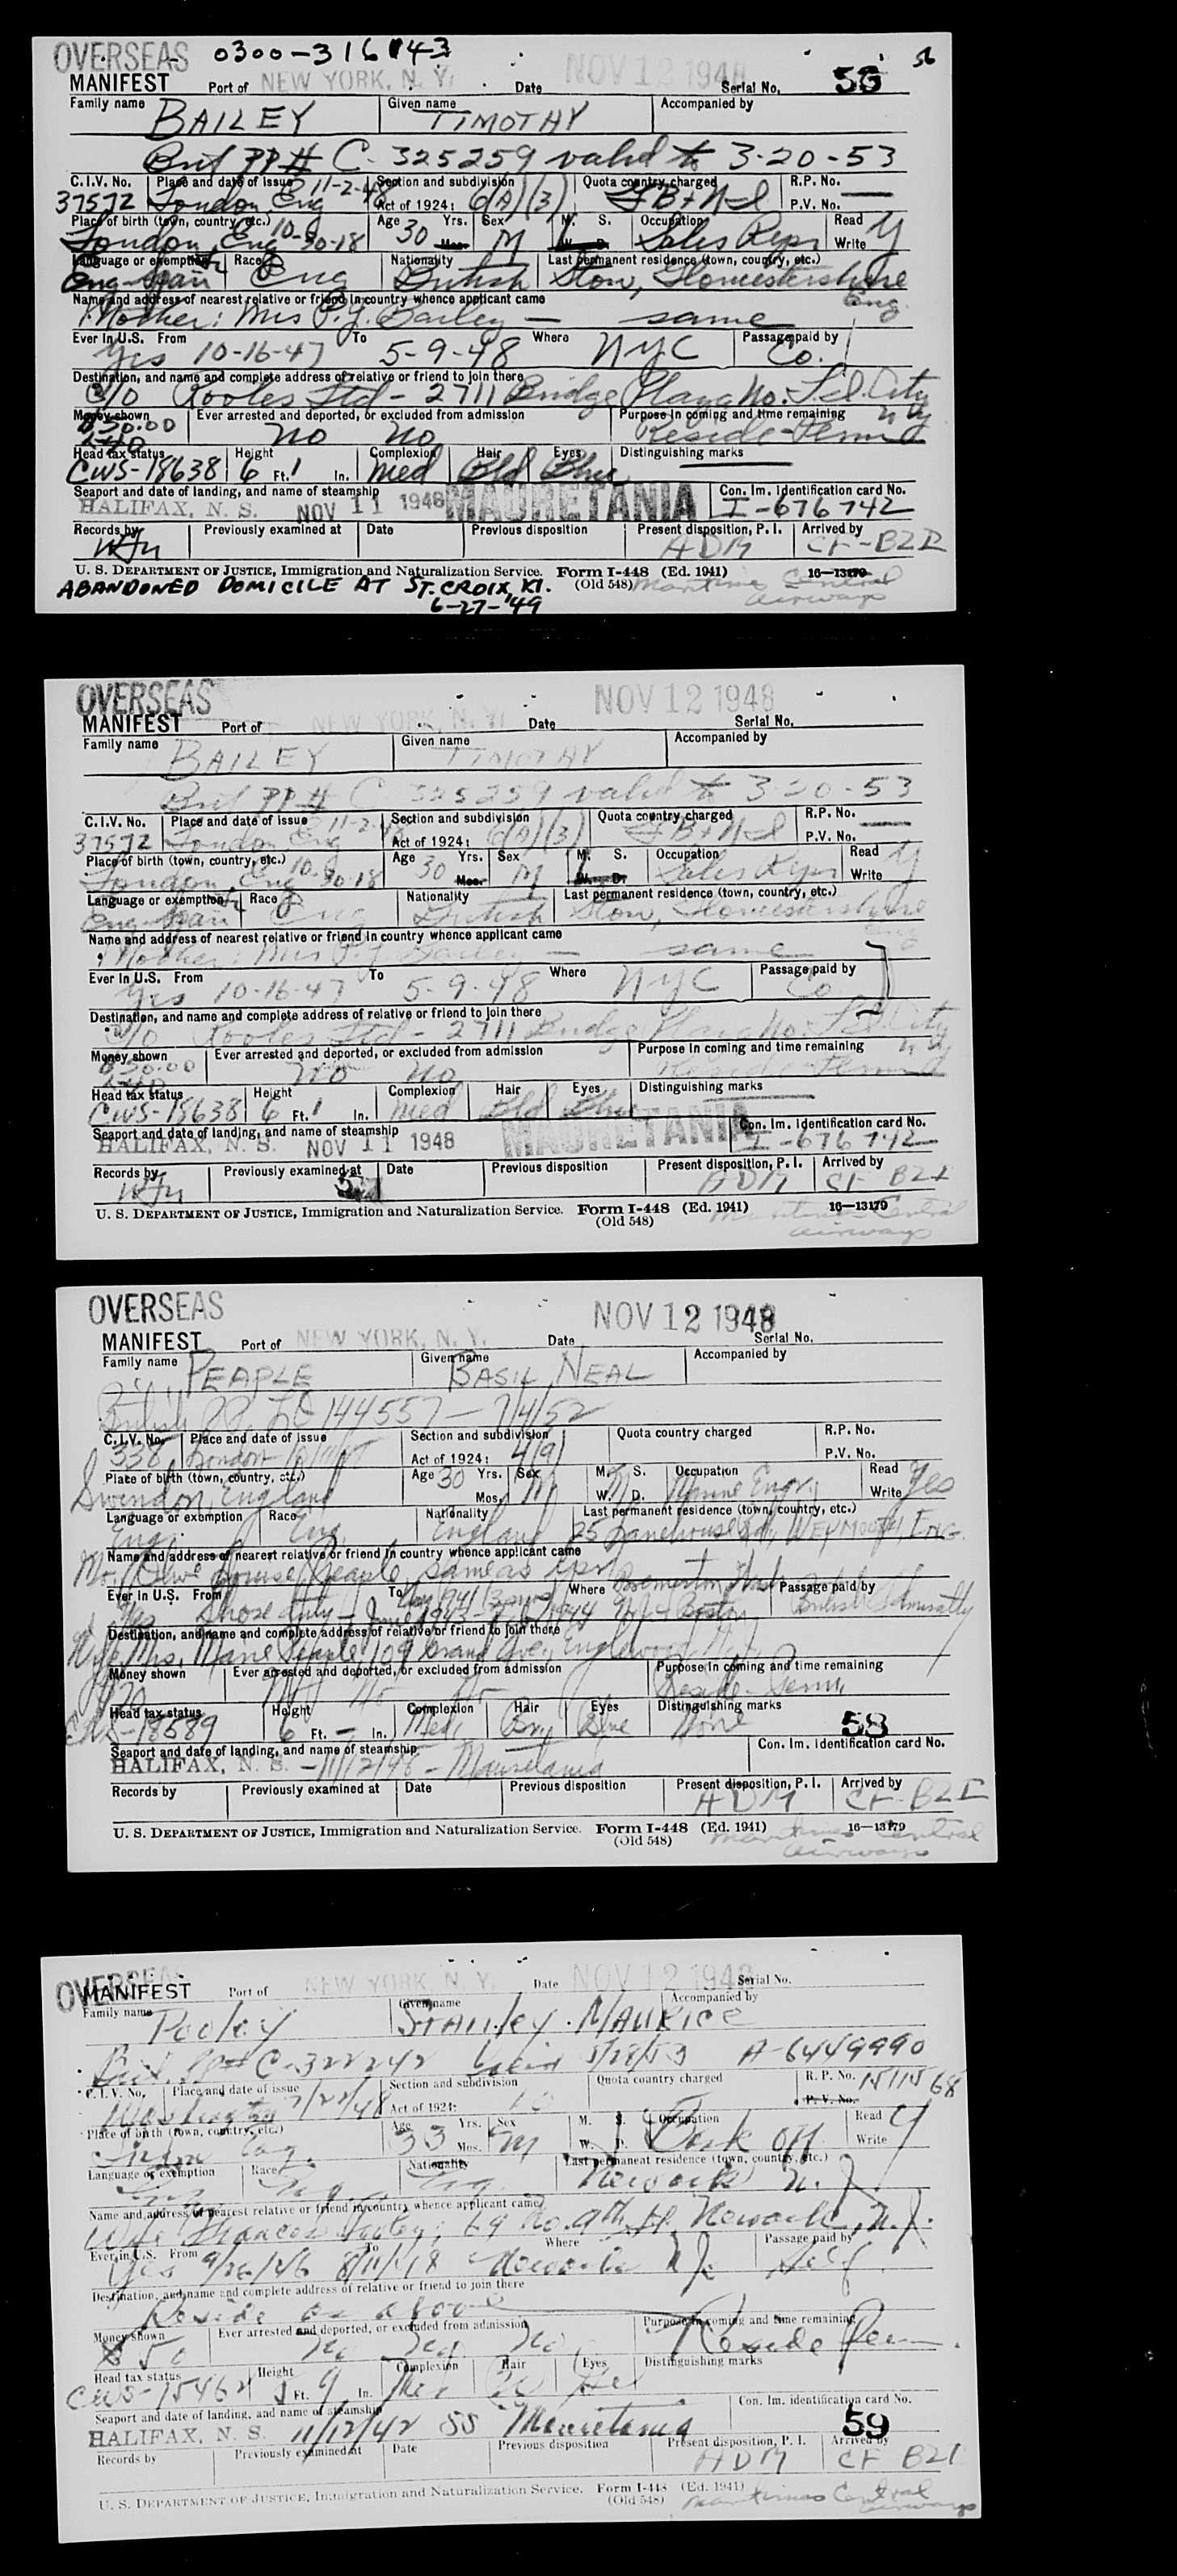 OVERSEAS 0300-316143
MANIFEST Port of NEW YORK, N. Y. Date NOV 12 1948 Serial No. 56
Family name BAILEY Given name TIMOTHY Accompanied by
Brit PP # C-325259 valid to 3-20-53
C.I.V. No. Place and date of issue 11-2-48 Section and subdivision Quota country charged R.P. No. —
37572 London Eng Act of 1924: 6(A)(3) GB+NI P.V. No.
Place of birth (town, country, etc.) 10- Age 30 Yrs. Mos. Sex M M. S. W. D. Occupation Sales Repr Read Y
London, Eng 30-18 Write
Language or exemption Race Nationality Last permanent residence (town, country, etc.)
Eng-Span Eng British Stow, Gloucestershire Eng.
Name and address of nearest relative or friend in country whence applicant came
Mother: Mrs P. J. Bailey — same
Ever in U.S. From To Where Passage paid by
Yes 10-16-47 5-9-48 NYC Co.
Destination, and name and complete address of relative or friend to join there
C/O Rootes Ltd - 2711 Bridge Plaza No. - L.I. City N Y
Money shown Ever arrested and deported, or excluded from admission Purpose in coming and time remaining
$50.00 no no Reside-Perm
Head tax status Height Complexion Hair Eyes Distinguishing marks —
CWS-18638 6 Ft. 1 In. Med Bld Blue
Seaport and date of landing, and name of steamship Con. Im. Identification card No.
HALIFAX, N. S. NOV 11 1948 MAURETANIA I-676742
Records by Previously examined at Date Previous disposition Present disposition, P. I. Arrived by
ADM CF-BZI
U. S. DEPARTMENT OF JUSTICE, Immigration and Naturalization Service. Form I-448 (Ed. 1941) 16—13179
(Old 548) Maritime Central Airways
ABANDONED DOMICILE AT ST. CROIX, KI.
6-27-'49
OVERSEAS
MANIFEST Port of NEW YORK, N. Y. Date NOV 12 1948 Serial No.
Family name BAILEY Given name TIMOTHY Accompanied by
Brit PP # C 325259 valid to 3-20-53
C.I.V. No. Place and date of issue 11-2-48 Section and subdivision Quota country charged R.P. No. —
37572 London Eng Act of 1924: 6(A)(3) GB+NI P.V. No.
Place of birth (town, country, etc.) 10- Age 30 Yrs. Mos. Sex M M. S. W. D. Occupation Sales Repr Read Y
London, Eng 30-18 Write
Language or exemption Race Nationality Last permanent residence (town, country, etc.)
Eng-Span Eng British Stow, Gloucestershire Eng
Name and address of nearest relative or friend in country whence applicant came
Mother: Mrs P. J. Bailey — same
Ever in U.S. From To Where Passage paid by
Yes 10-16-47 5-9-48 NYC Co
Destination, and name and complete address of relative or friend to join there
C/O Rootes Ltd - 2711 Bridge Plaza No. - L.I. City N Y
Money shown Ever arrested and deported, or excluded from admission Purpose in coming and time remaining
$50.00 no no Reside-Perm
Head tax status Height Complexion Hair Eyes Distinguishing marks —
CWS-18638 6 Ft. 1 In. Med Bld Blue
Seaport and date of landing, and name of steamship Con. Im. Identification card No.
HALIFAX, N. S. NOV 11 1948 MAURETANIA I-676742
Records by Previously examined at Date Previous disposition Present disposition, P. I. Arrived by
ADM CF BZI
U. S. DEPARTMENT OF JUSTICE, Immigration and Naturalization Service. Form I-448 (Ed. 1941) 16—13179
(Old 548) Maritime Central Airways
OVERSEAS
MANIFEST Port of NEW YORK, N. Y. Date NOV 12 1948 Serial No.
Family name PEAPLE Given name BASIL NEAL Accompanied by
British PP. LC 144557 — 7/4/52
C.I.V. No. Place and date of issue Section and subdivision Quota country charged R.P. No.
338 London Act of 1924: 4(a) P.V. No.
Place of birth (town, country, etc.) Age 30 Yrs. Mos. Sex M M. S. W. D. Occupation Marine Engr. Read Yes
Swindon, England Write
Language or exemption Race Nationality Last permanent residence (town, country, etc.)
Eng. Eng England 25 Lanehouse Rd, WEYMOUTH, ENG.
Name and address of nearest relative or friend in country whence applicant came
Mo. Olive Louise Peaple, same as
Ever in U.S. From To Where Passage paid by
Yes 1941 Bremerton, Wash British Admiralty
June 1943 - 1944 Boston
Destination, and name and complete address of relative or friend to join there
Wife Mrs. Marie Peaple 109 Grand Ave, Englewood
Money shown Ever arrested and deported, or excluded from admission Purpose in coming and time remaining
No No Reside-Perm.
Head tax status Height Complexion Hair Eyes Distinguishing marks
CWS-18589 6 Ft. — In. Med. Brn Blue None 58
Seaport and date of landing, and name of steamship Con. Im. Identification card No.
HALIFAX, N. S. - 11/12/48 - Mauretania
Records by Previously examined at Date Previous disposition Present disposition, P. I. Arrived by
ADM CF-BZI
U. S. DEPARTMENT OF JUSTICE, Immigration and Naturalization Service. Form I-448 (Ed. 1941) 16—13179
(Old 548) Maritime Central Airways
OVERSEAS
MANIFEST Port of NEW YORK, N. Y. Date NOV 12 1948 Serial No.
Family name Pooley Given name Stanley. MAURICE Accompanied by
Brit. PP# C-322242 5/28/53 A-6449990
C.I.V. No. Place and date of issue Section and subdivision Quota country charged R. P. No. 1511568
Washington 7/22/48 Act of 1924: P. V. No.
Place of birth (town, country, etc.) Age 33 Yrs. Mos. Sex M M. S. W. D. Occupation Read Y
Eng. Write
Language or exemption Race Nationality Last permanent residence (town, country, etc.)
Eng Eng Eng Newark N. J.
Name and address of nearest relative or friend in country whence applicant came
Wife Frances Pooley; 69 No. 9th St. Newark, N. J.
Ever in U.S. From To Where Passage paid by
Yes 9/26/46 8/11/48 Newark N J. Self.
Destination, and name and complete address of relative or friend to join there
Reside as above
Money shown Ever arrested and deported, or excluded from admission Purpose in coming and time remaining
$50 No No Reside Perm.
Head tax status Height Complexion Hair Eyes Distinguishing marks
CWS-15462 5 Ft. 9 In. Med
Seaport and date of landing, and name of steamship Con. Im. identification card No.
HALIFAX, N. S. 11/12/42 SS Mauretania 59
Records by Previously examined at Date Previous disposition Present disposition, P. I. Arrived by
ADM CF BZI
U. S. DEPARTMENT OF JUSTICE, Immigration and Naturalization Service. Form I-448 (Ed. 1941)
(Old 548) Maritimes Central Airways